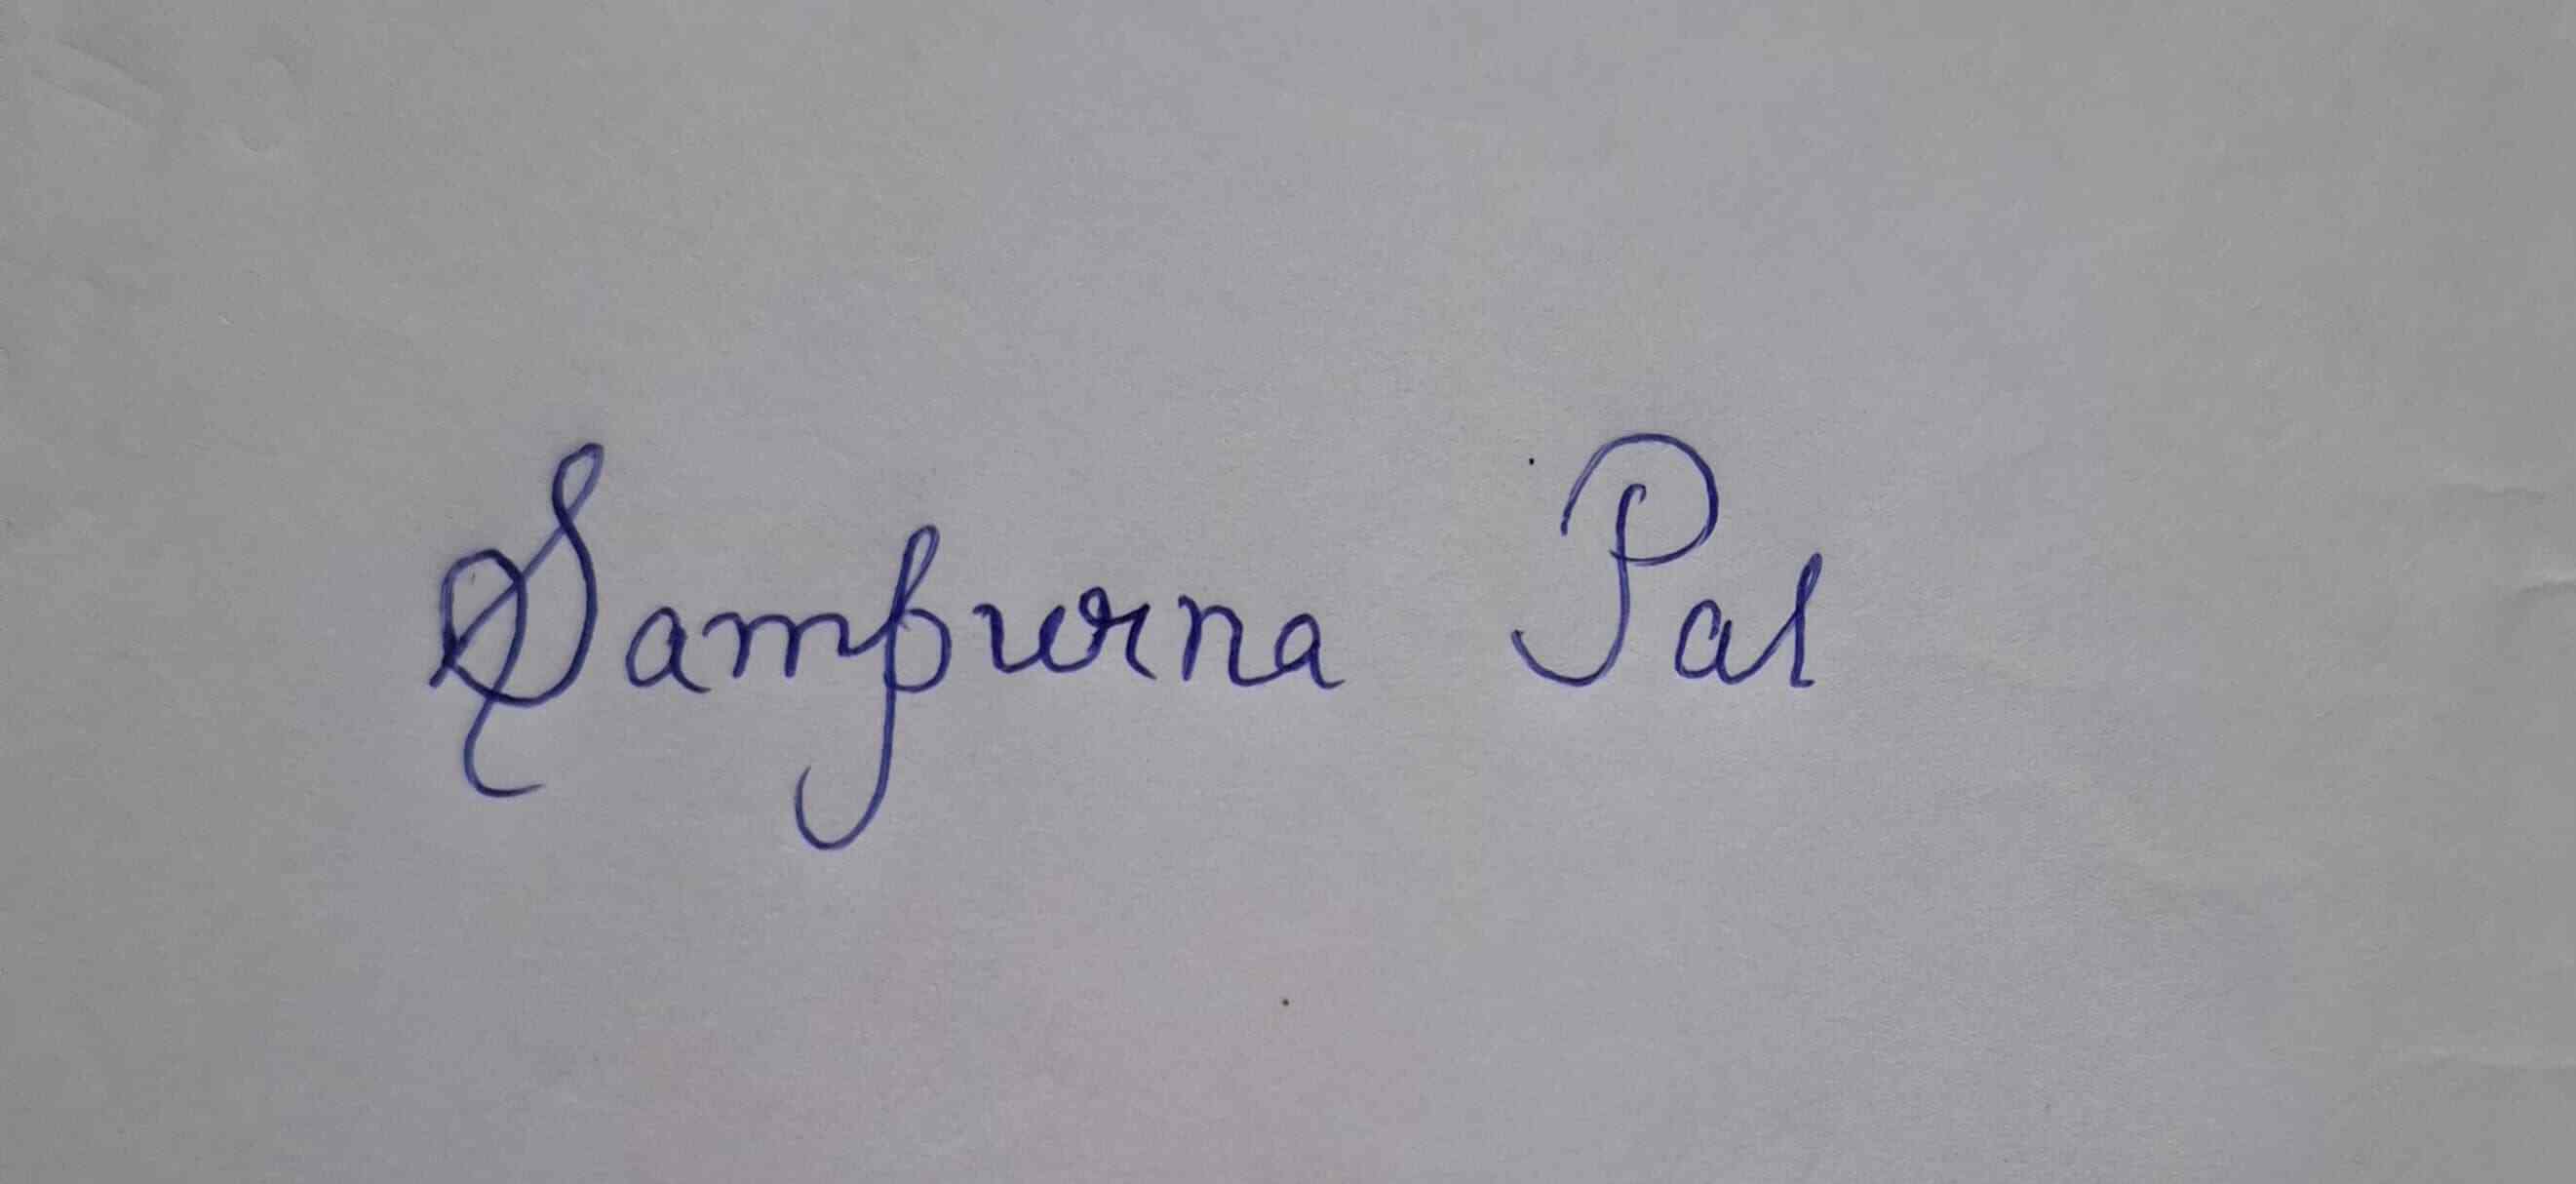 Sampurna Pal